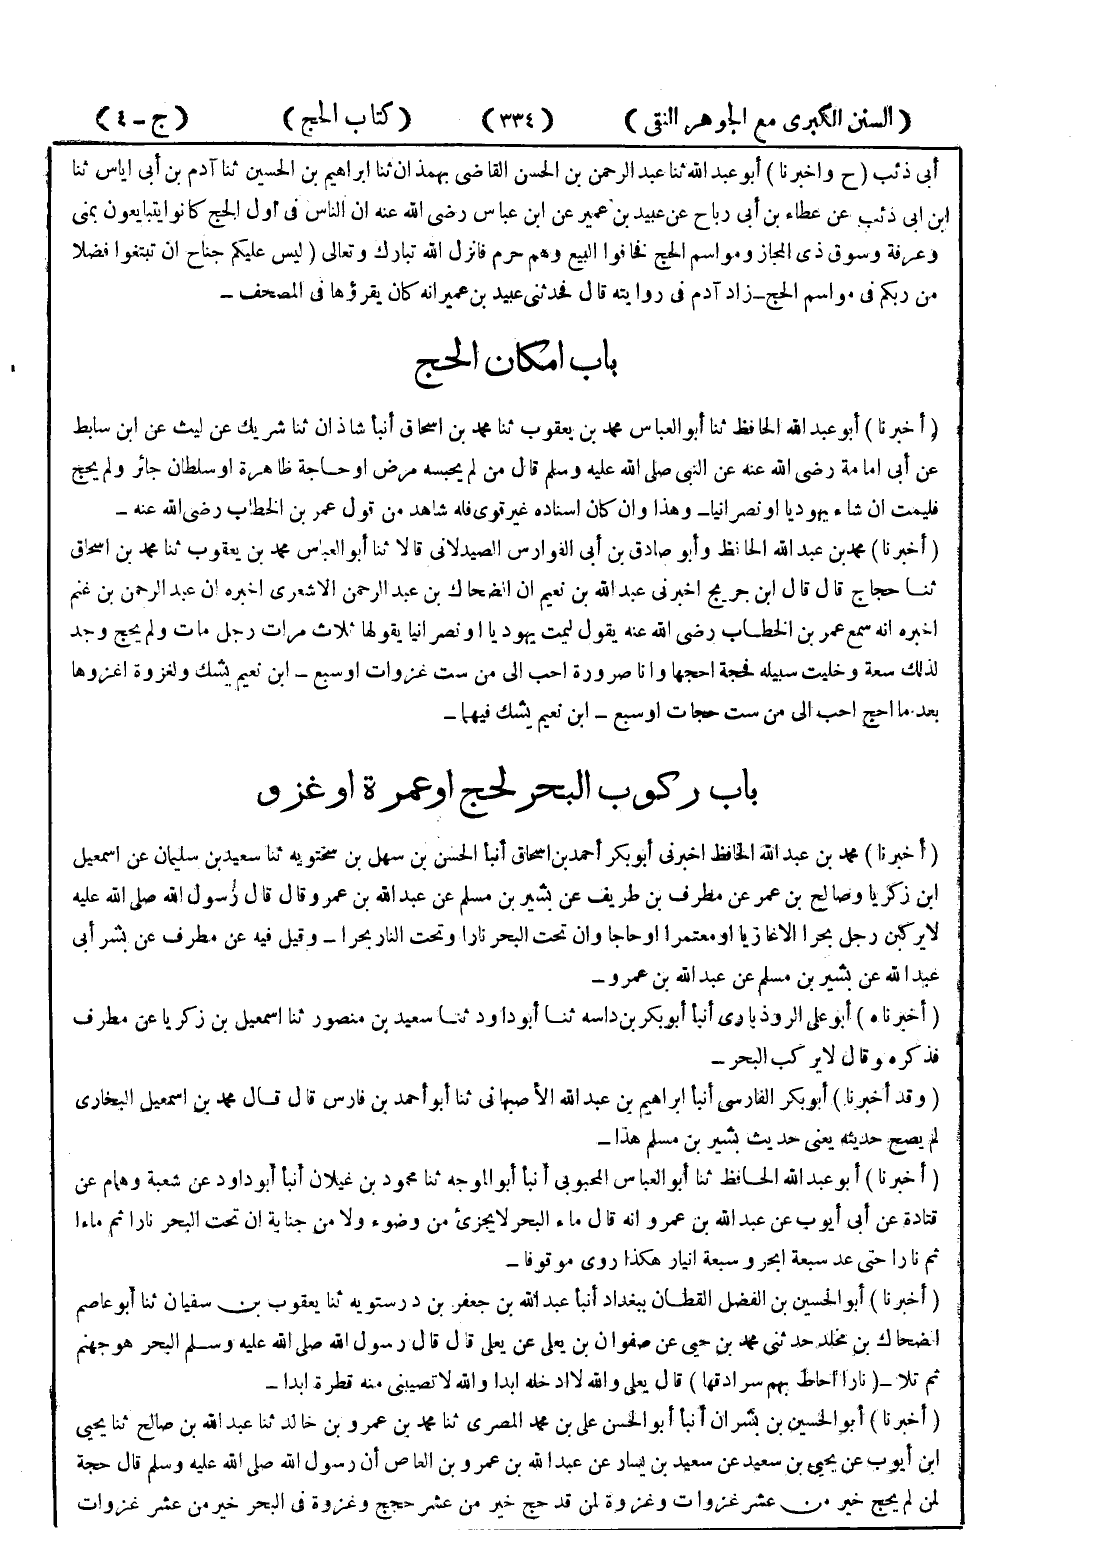 (السنن الكبرى مع الجوهر النقى) (٣٣٤) (كتاب الحج) (ج-٤)
أبى ذئب (ح واخبرنا) أبو عبد الله ثنا عبد الرحمن بن الحسن القاضى بهمذان ثنا ابراهيم بن الحسين ثنا آدم بن أبى اياس ثنا
ابن ابى ذئب عن عطاء بن أبى رباح عن عبيد بن عمير عن ابن عباس رضى الله عنه ان الناس فى اول الحج كانوا يتبايعون بمنى
وعرفة وسوق ذى المجاز ومواسم الحج فخافوا البيع وهم حرم فانزل الله تبارك وتعالى (ليس عليكم جناح ان تبتغوا فضلا
من ربكم فى مواسم الحج_زاد آدم فى روايته قال فحدثنى عبيد بن عمير انه كان يقرؤها فى المصحف _
باب امكان الحج
(أخبرنا) أبو عبد الله الحافظ ثنا أبو العباس محمد بن يعقوب ثنا محمد بن اسحاق أنبأ شاذان ثنا شريك عن ليث عن ابن سابط
عن أبى امامة رضى الله عنه عن النبى صلى الله عليه وسلم قال من لم يحبسه مرض او حاجة ظاهرة او سلطان جائر ولم يحج
فليمت ان شاء يهوديا او نصرانيا_ وهذا وان كان اسناده غير قوى فله شاهد من قول عمر بن الخطاب رضى الله عنه _
(أخبرنا) محمد بن عبد الله الحافظ وأبو صادق بن أبى الفوارس الصيدلانى قالا ثنا أبو العباس محمد بن يعقوب ثنا محمد بن اسحاق
ثنا حجاج قال قال ابن جريج اخبرنى عبد الله بن نعيم ان الضحاك بن عبد الرحمن الاشعرى اخبره ان عبد الرحمن بن غنم
اخبره انه سمع عمر بن الخطاب رضى الله عنه يقول ليمت يهوديا او نصرانيا يقولها ثلاث مرات رجل مات ولم يحج وجد
لذلك سعة وخليت سبيله فحجة احجها وانا صرورة احب الى من ست غزوات اوسبع _ ابن نعيم يشك ولغزوة اغزوها
بعد ما احج احب الى من ست حجات اوسبع _ ابن نعيم يشك فيهما _
باب ركوب البحر لحج او عمرة او غزو
(أخبرنا) محمد بن عبد الله الحافظ اخبرنى أبو بكر أحمد بن اسحاق أنبأ الحسن بن سهل بن سختويه ثنا سعيد بن سليمان عن اسمعيل
ابن زكريا وصالح بن عمر عن مطرف بن طريف عن بشير بن مسلم عن عبد الله بن عمرو قال قال رسول الله صلى الله عليه
لا يركبن رجل بحرا الا غازيا او معتمرا او حاجا وان تحت البحر نارا وتحت النار بحرا _ وقيل فيه عن مطرف عن بشر أبى
عبد الله عن بشير بن مسلم عن عبد الله بن عمرو _
(أخبرناه) أبو على الروذبارى أنبأ أبو بكر بن داسه ثنا أبو داود ثنا سعيد بن منصور ثنا اسمعيل بن زكريا عن مطرف
فذكره وقال لا يركب البحر _
(وقد أخبرنا) أبو بكر الفارسى أنبأ ابراهيم بن عبد الله الأصبهانى ثنا أبو أحمد بن فارس قال قال محمد بن اسمعيل البخارى
لم يصح حديثه يعنى حديث بشير بن مسلم هذا _
(أخبرنا) أبو عبد الله الحافظ ثنا أبو العباس المحبوبى أنبأ أبو الموجه ثنا محمود بن غيلان أنبأ أبو داود عن شعبة وهمام عن
قتادة عن أبى أيوب عن عبد الله بن عمرو انه قال ماء البحر لا يجزئ من وضوء ولا من جنابة ان تحت البحر نارا ثم ماءا
ثم نارا حتى عد سبعة ابحر وسبعة انيار هكذا روى موقوفا _
(أخبرنا) أبو الحسين بن الفضل القطان ببغداد أنبأ عبد الله بن جعفر بن درستويه ثنا يعقوب بن سفيان ثنا أبو عاصم
الضحاك بن مخلد حدثنى محمد بن حيى عن صفوان بن يعلى عن يعلى قال قال رسول الله صلى الله عليه وسلم البحر هو جهنم
ثم تلا _(نارا أحاط بهم سرادقها) قال يعلى والله لا ادخله ابدا والله لا تصيبنى منه قطرة ابدا _
(أخبرنا) أبو الحسين بن بشران أنبأ أبو الحسن على بن محمد المصرى ثنا محمد بن عمرو بن خالد ثنا عبد الله بن صالح ثنا يحيى
ابن أيوب عن يحيى بن سعيد عن سعيد بن يسار عن عبد الله بن عمرو بن العاص أن رسول الله صلى الله عليه وسلم قال حجة
لمن لم يحج خير من عشر غزوات وغزوة لمن قد حج خير من عشر حجج وغزوة فى البحر خير من عشر غزوات